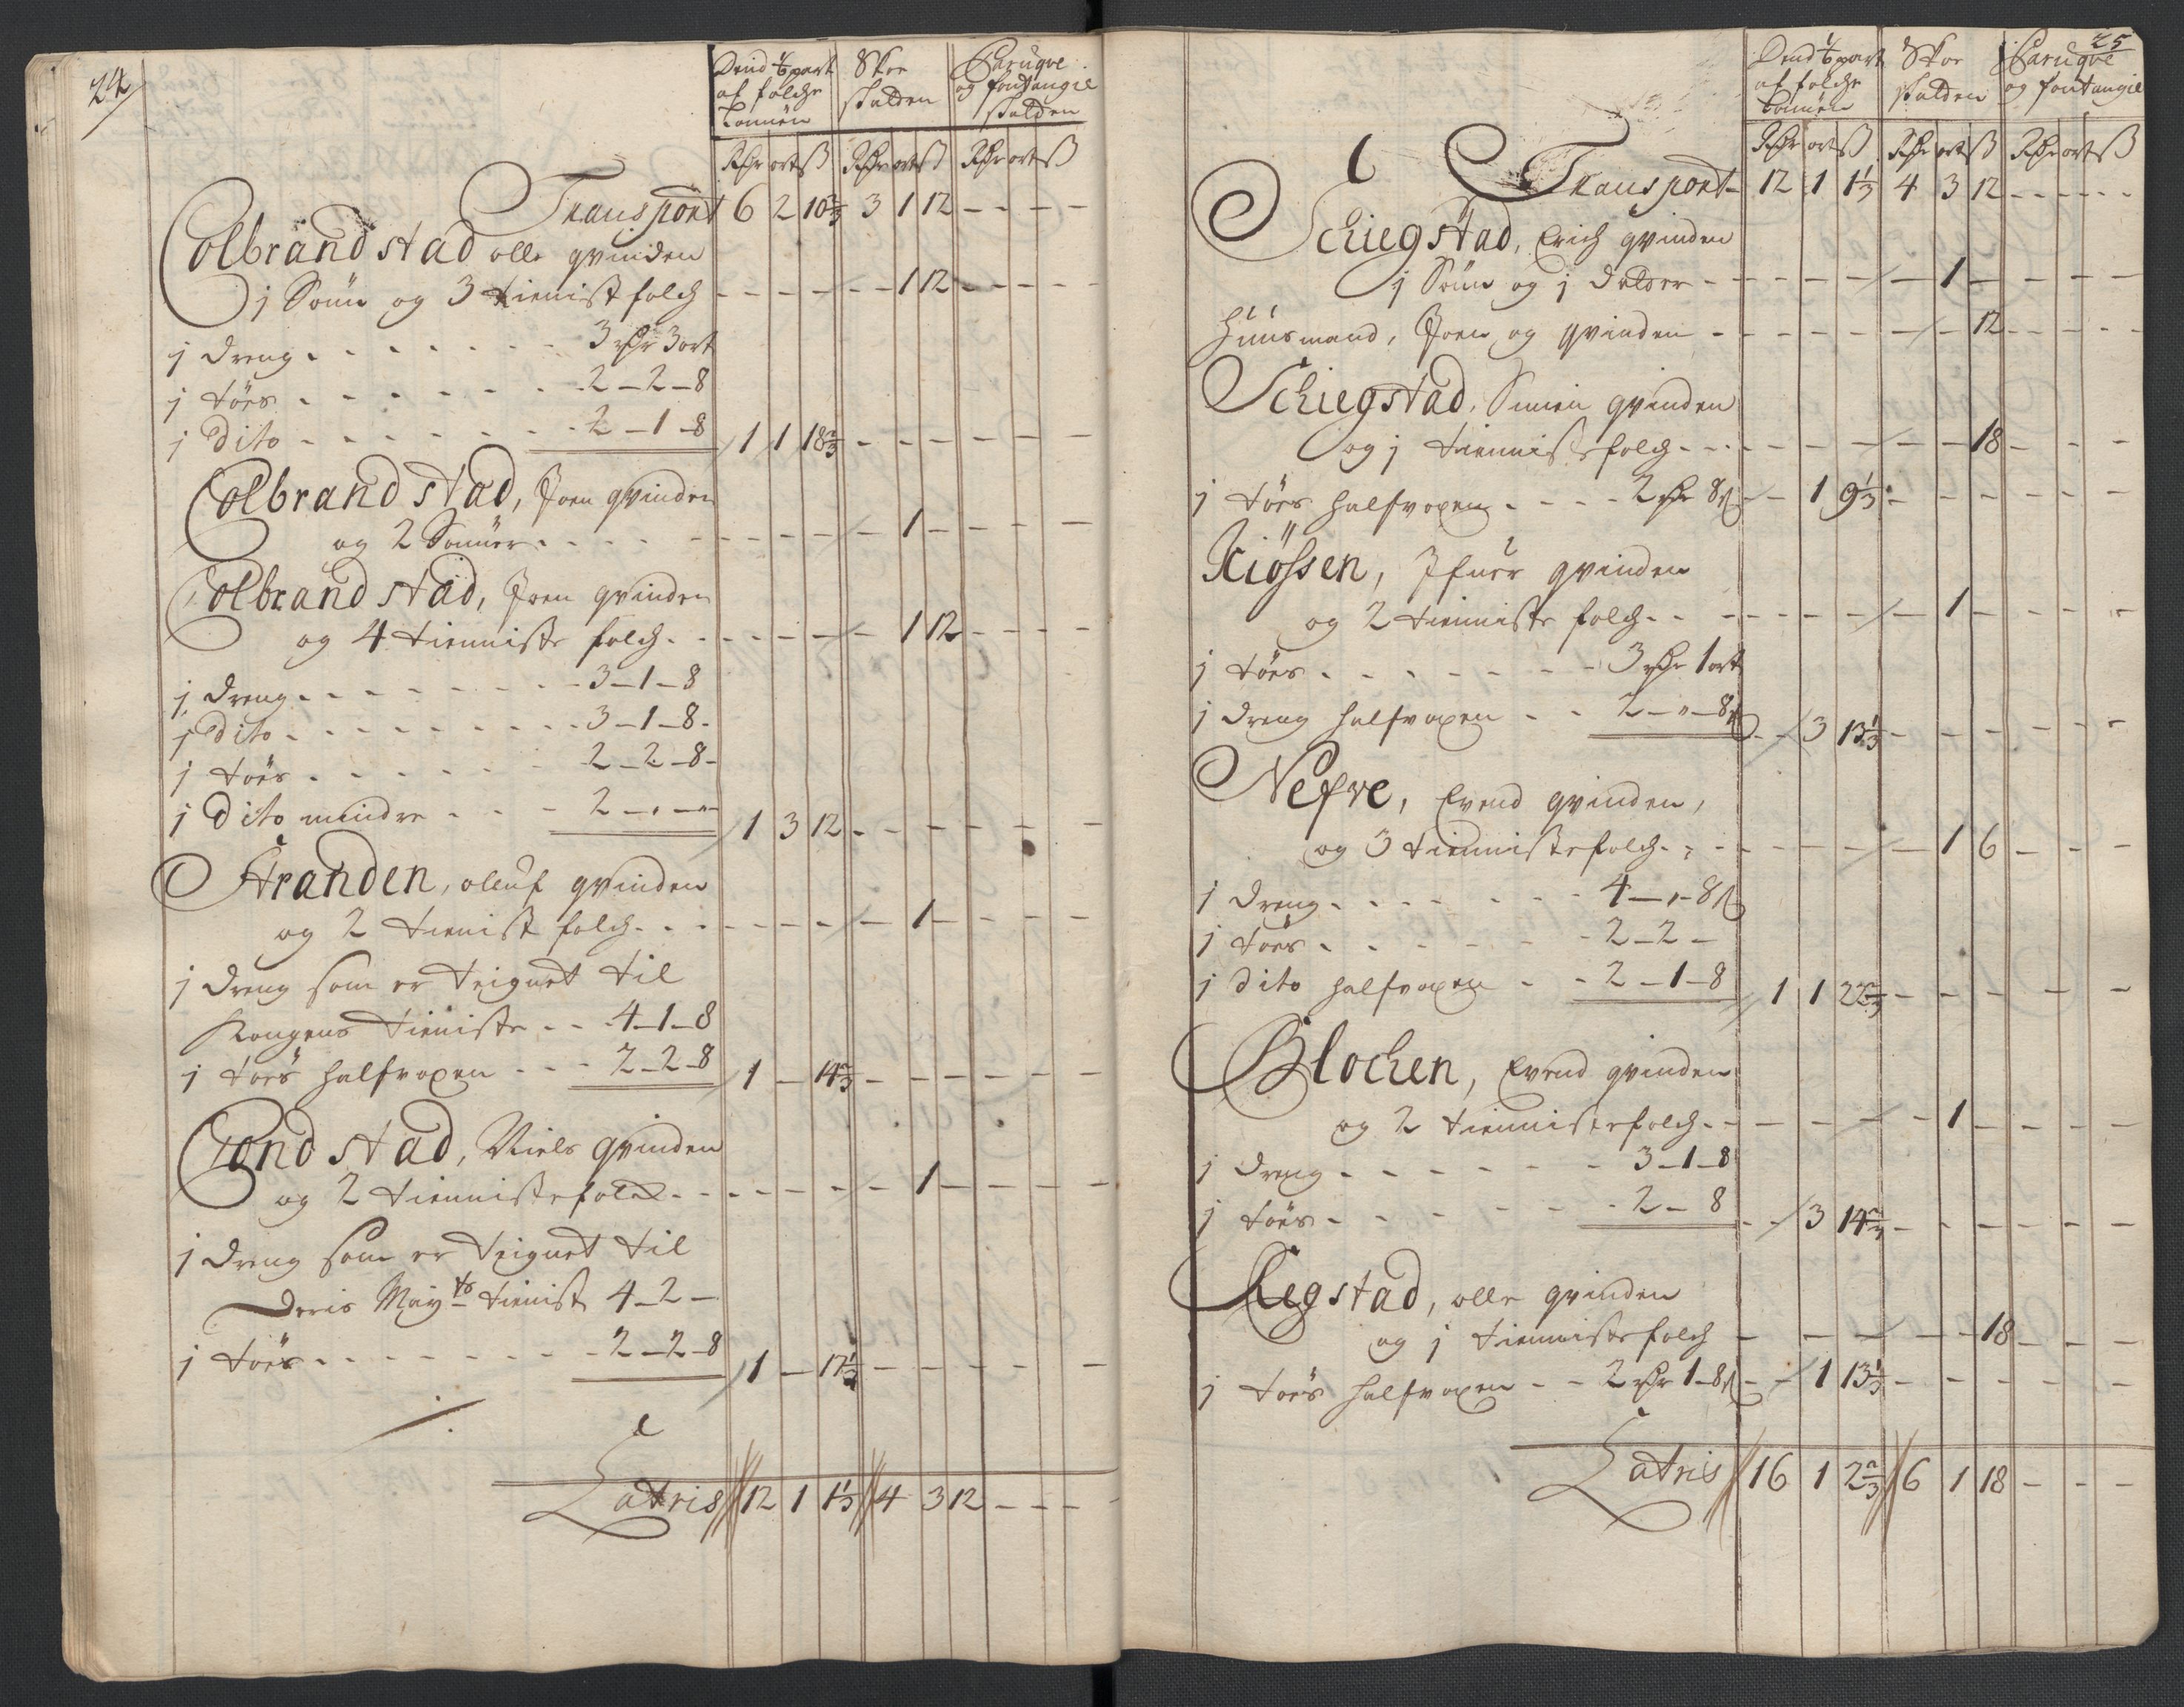 24
Dend 1/6 part af folche Lønnen | Skoe skatten | Paruqve og fontangie skatten
Rdr ort ß | Rdr ort ß | Rdr ort ß
Transport 6 2 10 2/3 3 1 12 - - - -
Colbrandstad olle qvinden
j Sønn og 3 tienist folch - - - - - - 1 12 - - - -
j dreng - - - 3 rdr 3 ort
j tøes - - - 2 - 2 - 8
j Dito - - - 2 - 1 - 8 1 1 18 2/3 - - - - - -
Colbrandstad, Joen qvinden
og 2 Sønner - - - - 1 - - - -
Colbrandstad, Joen qvinden
og 4 tienniste folch - - - - 1 12 - - - -
j dreng - - - 3 - 1 - 8
j Dito - - - 3 - 1 - 8 -
j tøes - - - 2 - 2 - 8 -
j Dito mindre - - - 2 - " - " - 1 3 12 - - - - - -
Stranden, oluf qvinden
og 2 tienist folch - - - - 1 - - - -
j dreng som er teignet til
Kongens tieniste - - 4 - 1 - 8
j tøes halfvoxen - - - 2 - 2 - 8 1 - 14 2/3 - - - - - -
Tandstad, Niels qvinden
og 2 tiennistefolch - - - - 1 - - - -
j dreng som er teignet til
Deris Mayts tienist 4 - 2 -
j tøes - - - 2 - 2 - 8 1 - 17 1/3 - - - - -
Latris 12 1 1 1/3 4 3 12 - - - -
25
Dend 1/6 part af folche Lønnen | Skoe skatten | Paruqve og fontangie
Rdr ort ß | Rdr ort ß | Rdr ort ß
Transport - 12 1 1 1/3 4 3 12 - - - - -
Schiegstad, Erich qvinden
j Sønn og j datter - - - - - 1 - - - -
Huusmand, Joen og qvinden - - - - - 12 - - - -
Schiegstad, Simen qvinden
og j tienniste folch - - - - - 18 - - -
j tøes halfvoxen - - - 2 rdr 8 ß - 1 9 1/3 - - - - - -
Kiøssen, Ifuer qvinden
og 2 tienniste folch - - - - 1 - - - -
j tøes - - - 3 rdr 1 ort
j dreng halfvoxen - - 2 - " - 8 ß - 3 13 1/3 - - - - - -
Nefre, Evend qvinden,
og 3 tiennistefolch - - - - 1 6 - - -
j dreng - - - 4 - " - 8 ß
j tøes - - - 2 - 2 -
j dito halfvoxen - - 2 - 1 - 8 1 1 22 2/3 - - - - - -
Blochen, Evend qvinden
og 2 tiennistefolch - - - - 1 - - - -
j dreng - - - 3 - 1 - 8
j tøes - - - 2 - 8 - 3 14 2/3 - - - - - -
Regstad, olle qvinden
og j tienniste folch - - - - - 18 - - -
j tøes halfvoxen - - 2 rdr 1 - 8 ß - 1 13 1/3 - - - - - -
Latris 16 1 2 2/3 6 1 18 - - -